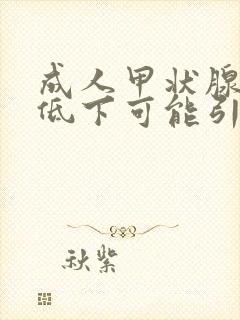 成人甲状腺
低下可能引
秋紫